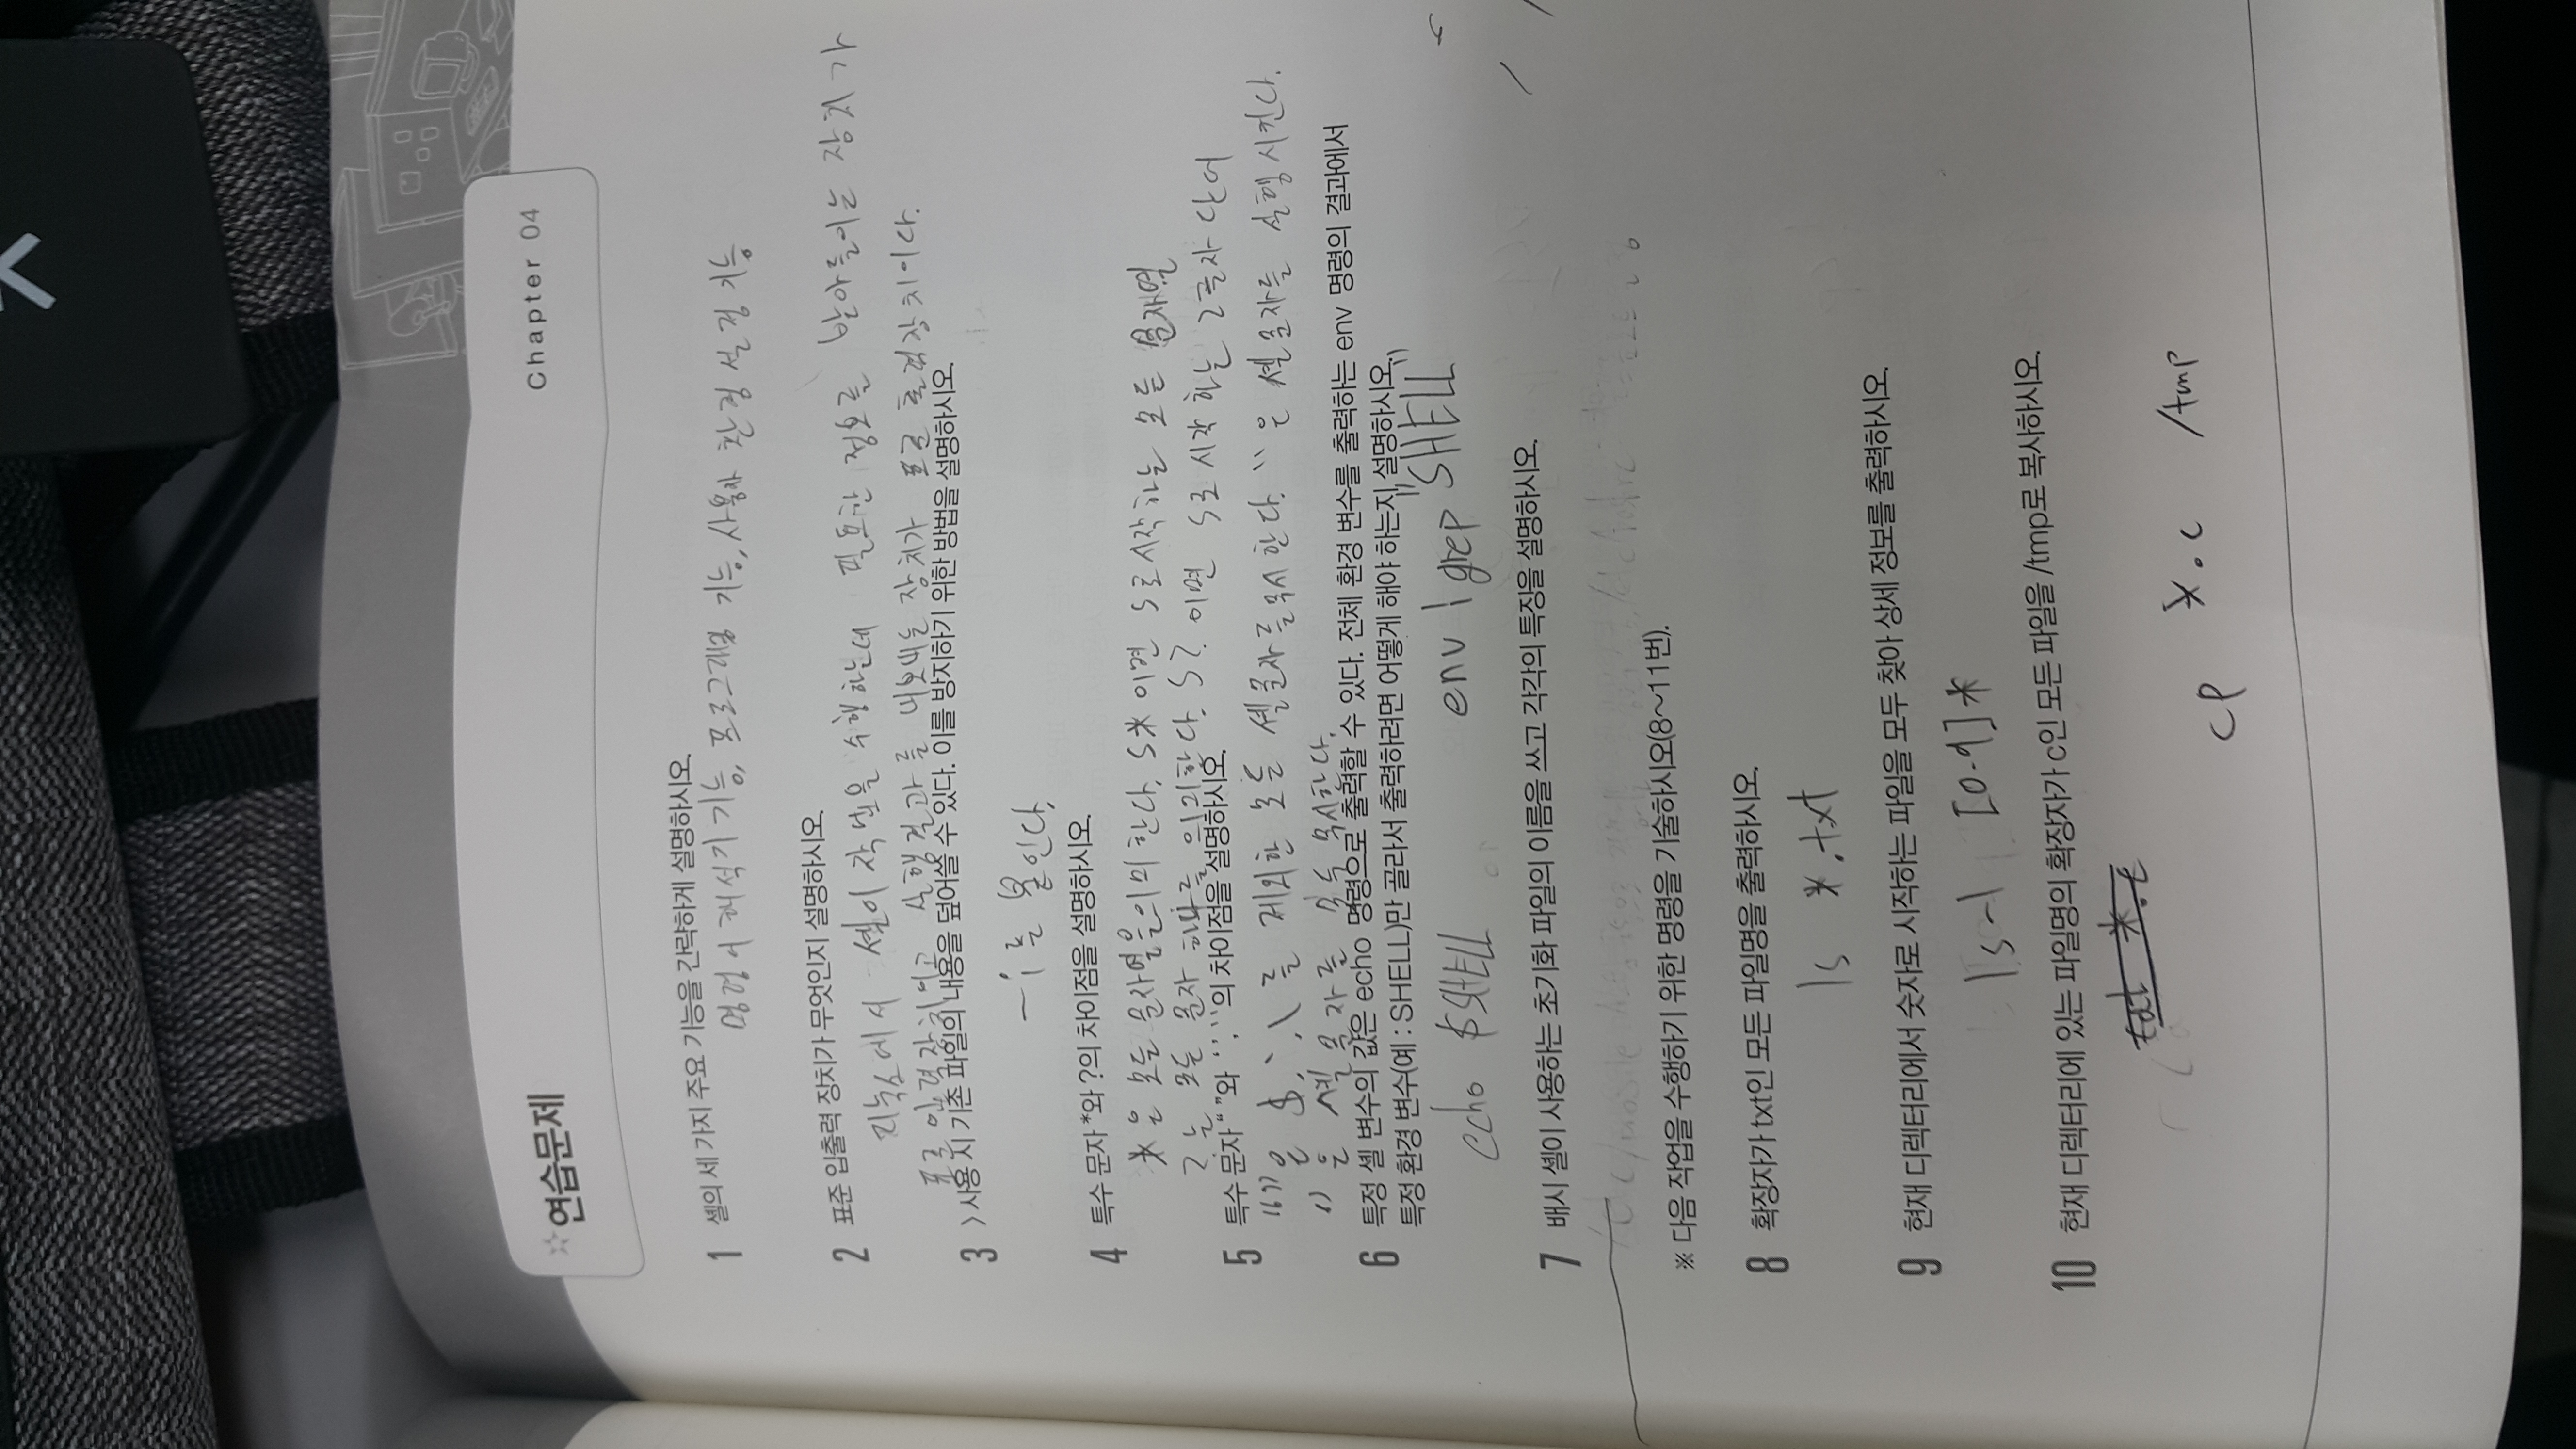 ☆연습문제
Chapter 04
1 셸의 세 가지 주요 기능을 간략하게 설명하시오.
명령어 해석기 기능, 프로그래밍 기능, 사용자 환경 설정 기능
2 표준 입출력 장치가 무엇인지 설명하시오.
리눅스에서 셸이 작업을 수행하는데 필요한 정보를 받아들이는 장치가
표준 입력장치이고 실행결과를 내보내는 장치가 표준 출력장치이다.
3 > 사용 시 기존 파일의 내용을 덮어쓸 수 있다. 이를 방지하기 위한 방법을 설명하시오.
-i를 붙인다.
4 특수 문자 *와 ?의 차이점을 설명하시오.
*은 모든 문자열을 의미한다. s* 이면 s로 시작하는 모든 문자열
?는 모든 문자 하나를 의미한다. s? 이면 s로 시작하는 2글자 단어
5 특수 문자 “ ”와 ‘ ’, ``의 차이점을 설명하시오.
“”은 $, `, \를 제외한 모든 셸문자를 무시한다. ``은 셸문자를 실행시킨다.
‘’은 셸문자를 모두 무시한다.
6 특정 셸 변수의 값은 echo 명령으로 출력할 수 있다. 전체 환경 변수를 출력하는 env 명령의 결과에서
특정 환경 변수(예 : SHELL)만 골라서 출력하려면 어떻게 해야 하는지 설명하시오.
echo $SHELL env | grep "SHELL"
7 배시 셸이 사용하는 초기화 파일의 이름을 쓰고 각각의 특징을 설명하시오.
※ 다음 작업을 수행하기 위한 명령을 기술하시오(8~11번).
8 확장자가 txt인 모든 파일명을 출력하시오.
ls *.txt
9 현재 디렉터리에서 숫자로 시작하는 파일을 모두 찾아 상세 정보를 출력하시오.
ls -l [0-9]*
10 현재 디렉터리에 있는 파일명의 확장자가 c인 모든 파일을 /tmp로 복사하시오.
cp *.c /tmp